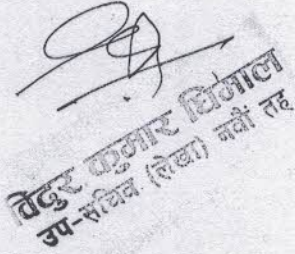 विदुर कुमार घिमाल
उप-सचिव (लेखा) नवौं तह